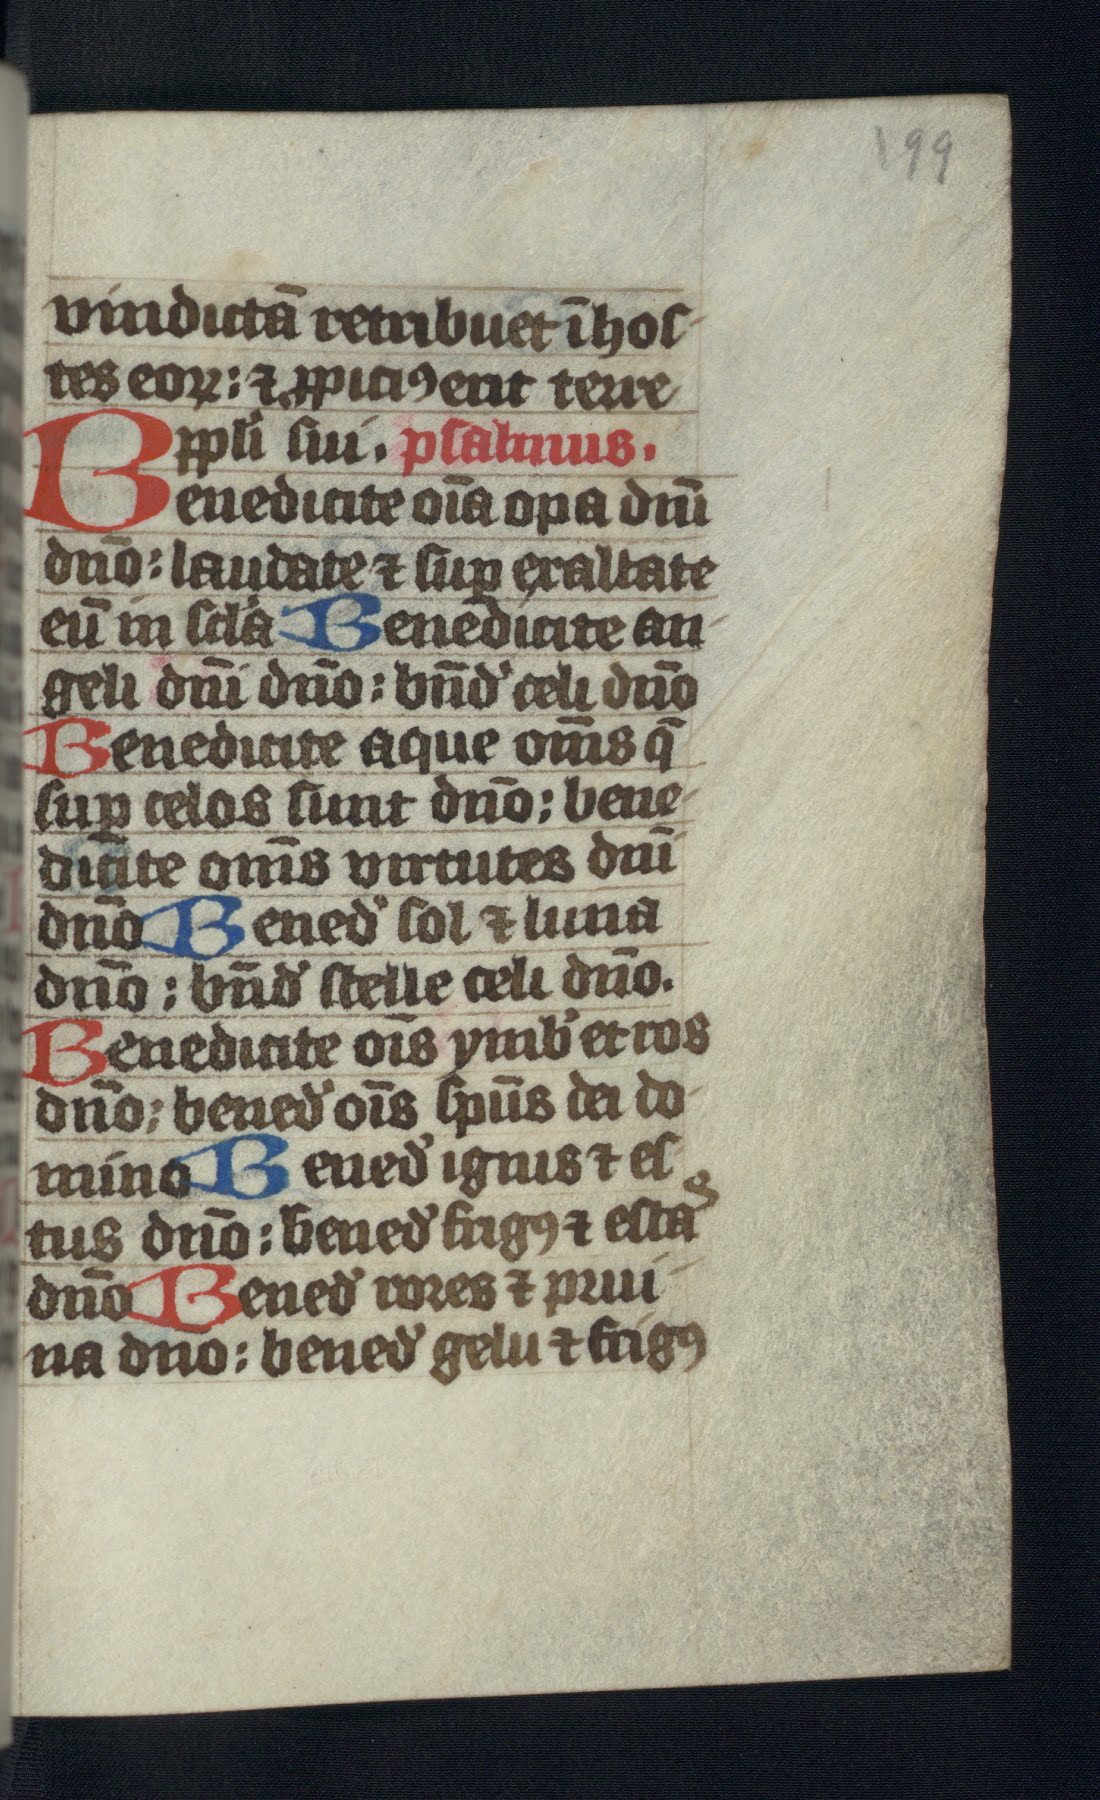 199
vindictā retribuet ī hos-
tes eoꝝ: ⁊ ꝓpiciꝰ erit terre
ppl'i sui. psalmus.
Benedicite oīa opa dnī
dnō: laudate ⁊ suꝑ exaltate
eū in scl'a Benedicite an-
geli dnī dnō: bn̄d' celi dnō
Benedicite aque om̄s q̄
suꝑ celos sunt dnō: bene-
dicite om̄s virtutes dnī
dnō Bened' sol ⁊ luna
dnō: bn̄d' stelle celi dnō.
Benedicite oīs ymb' et ros
dnō: bened' oīs spūs dei do-
mino Bened' ignis ⁊ es
tus dnō: bened' frigꝰ ⁊ estas
dnō Bened' rores ⁊ prui-
na dno: bened' gelu ⁊ frigꝰ